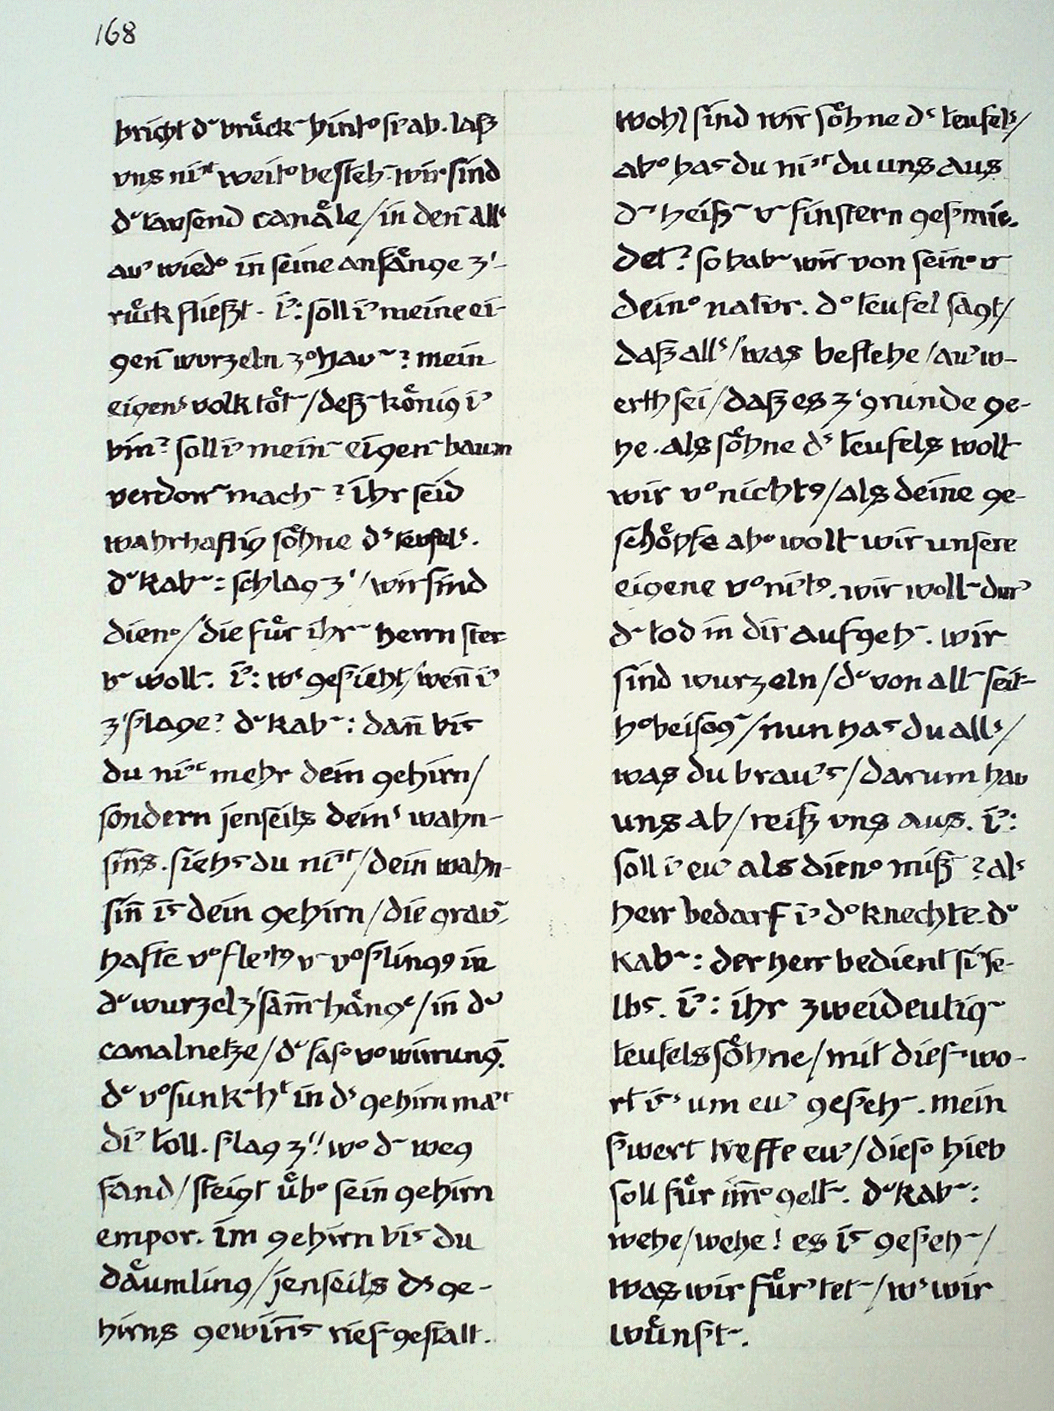 168
bricht d brück hint si ab. laß
uns nit weit besteh. wir sind
d tausend canäle/in den all
au wied in seine anfänge z-
rück fließt. i: soll i meine ei-
gen wurzeln z hau? mein
eigens volk töt/deß könig i
bin? soll i mein eigen baum
verdorr mach? ihr seid
wahrhaftig söhne d teufels.
d kab: schlag z/wir sind
dien/die für ihr herrn ster-
b woll. i: w gesieht/wen i
z slage? d kab: dan bis
du nit mehr dein gehirn/
sondern jenseits deins wahn-
sins. siehs du nit/dein wahn-
sin is dein gehirn/die grau-
hafte v fletg u v slingg in
d wurzelz samhänge/in d
canalnetze/d fas v wirrung.
d v sunk ht in d gehirn mat
di toll. slag z! w d weg
fand/steigt üb sein gehirn
empor. im gehirn bis du
däumling/jenseits ds ge-
hirns gewins ries gestalt.
wohl sind wir söhne ds teufels/
ab has du nit du uns aus
d heiß u finstern gesmie-
det? so hab wir von sein u
dein natur. d teufel sagt/
daß alls/was bestehe/au w-
erth sei/daß es z grunde ge-
he. als söhne ds teufels woll
wir v nichtg/als deine ge-
schöpfe ab woll wir unsere
eigene v nitg. wir woll dur
d tod in dir aufgeh. wir
sind wurzeln/d von all seit
h beisog/nun has du alls/
was du braus/darum hau
uns ab/reiß uns aus. i:
soll i eu als dien miß? als
herr bedarf i d knechte. d
kab: der herr bedient si se-
lbs. i: ihr zweideutig
teufelssöhne/mit dies wo-
rt is um eu geseh. mein
swert treffe eu/dies hieb
soll für im gelt. d kab:
wehe/wehe! es is geseh/
was wir fürtet/w wir
wünst.